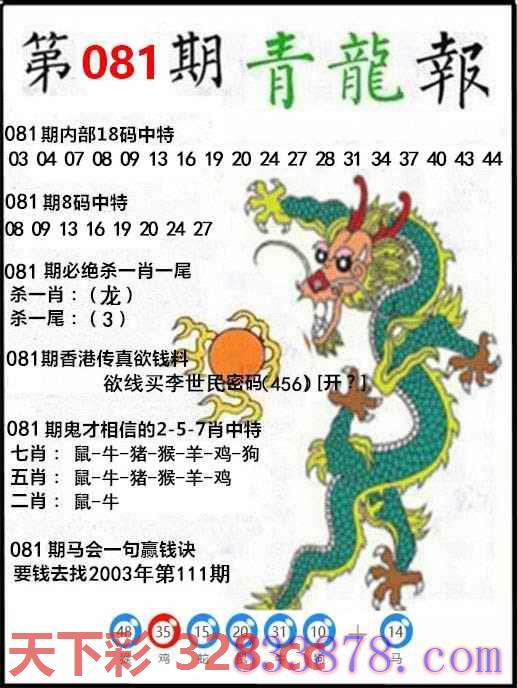 第081期 青龍報
081期内部18码中特
03 04 07 08 09 13 16 19 20 24 27 28 31 34 37 40 43 44
081期8码中特
08 09 13 16 19 20 24 27
081期必绝杀一肖一尾
杀一肖：（龙）
杀一尾：（3）
081期香港传真欲钱料
欲线买李世民密码(456) [开？]
081期鬼才相信的2-5-7肖中特
七肖：鼠-牛-猪-猴-羊-鸡-狗
五肖：鼠-牛-猪-猴-羊-鸡
二肖：鼠-牛
081期马会一句赢钱诀
要钱去找2003年第111期
48 35 15 20 31 10 14
鸡 蛇 狗 马
天下彩
833878.com